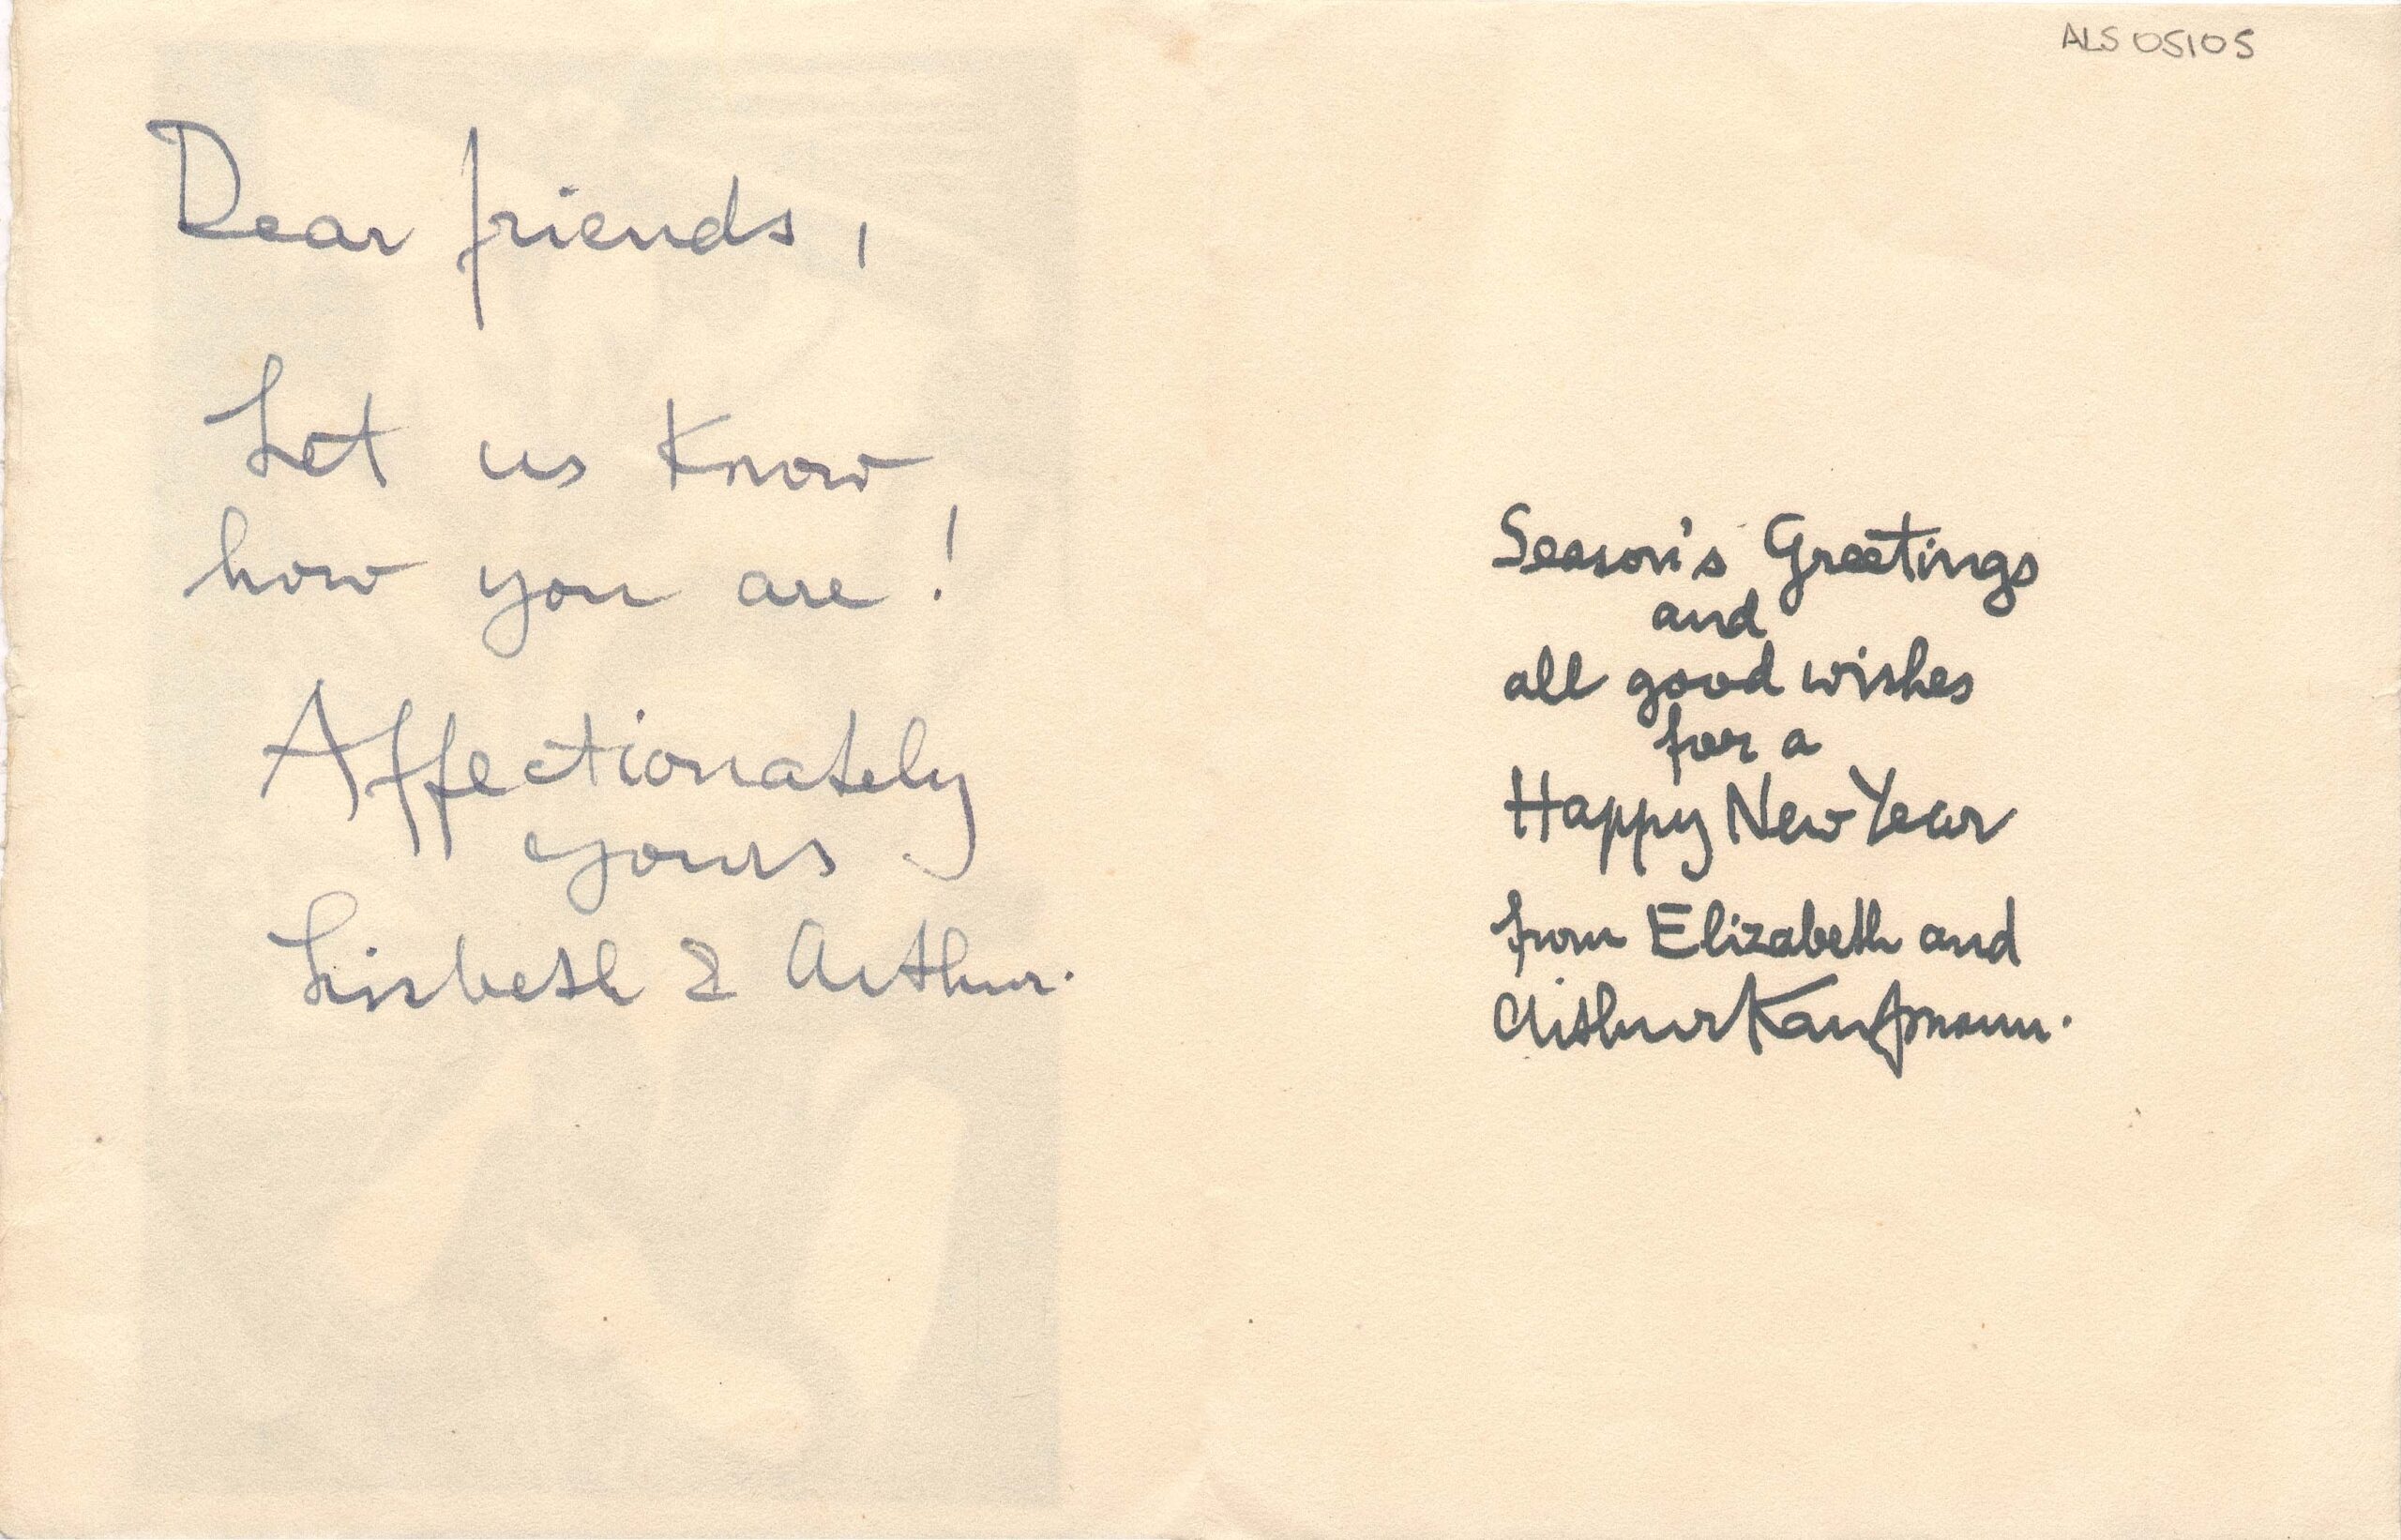 Dear friends,
Let us know
how you are!
Affectionately
yours
Lisbeth & Arthur.
ALS 05105
Season's Greetings
and
all good wishes
for a
Happy New Year
from Elizabeth and
Arthur Kaufmann.